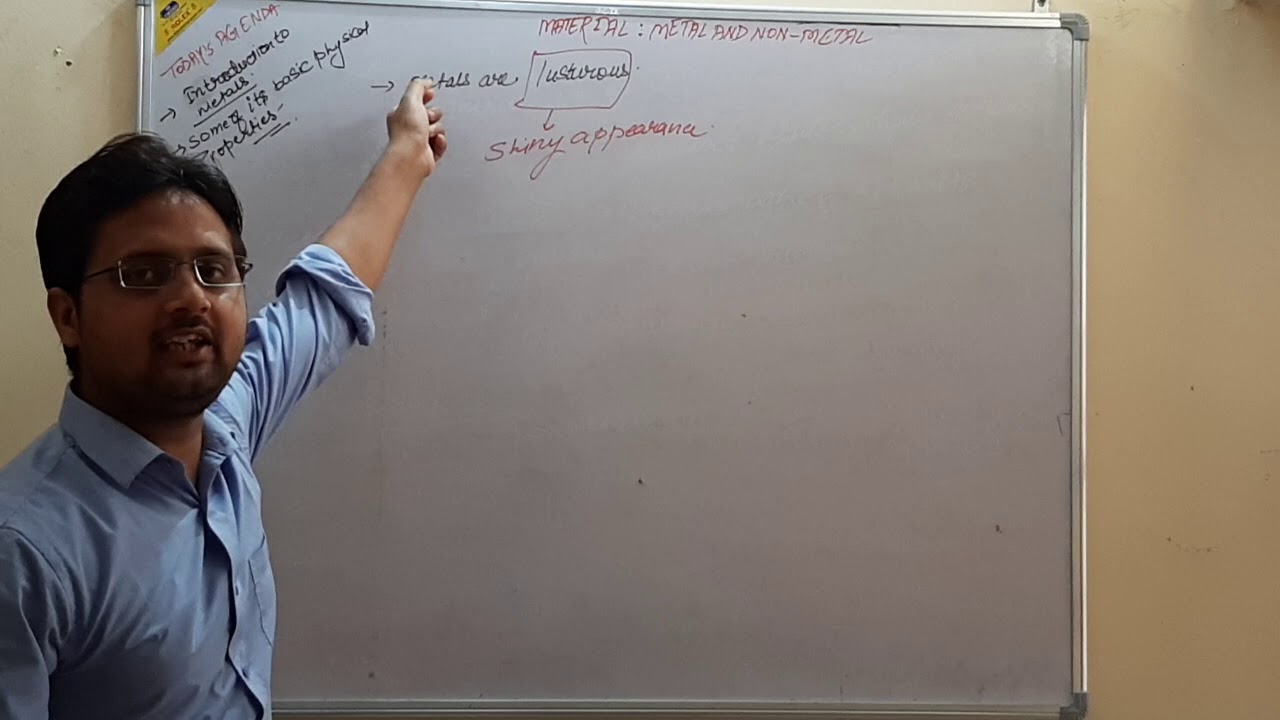 TODAY'S AGENDA
→ Introduction to
Metals.
→ Some of its basic physical
Properties
MATERIAL : METAL AND NON-METAL
→ Metals are lusturous.
Shiny appearance.